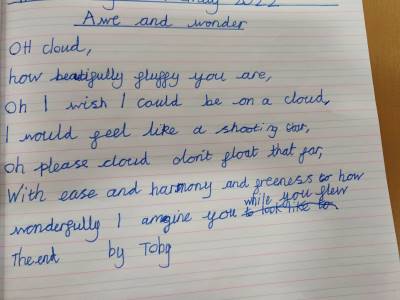 2022
Awe and wonder
OH cloud,
how beautifully fluffy you are,
Oh I wish I could be on a cloud,
I would feel like a shooting star,
Oh please cloud don't float that far,
With ease and harmony and freeness to how
while you flew
wonderfully I amegine you to look like to
The end by Toby